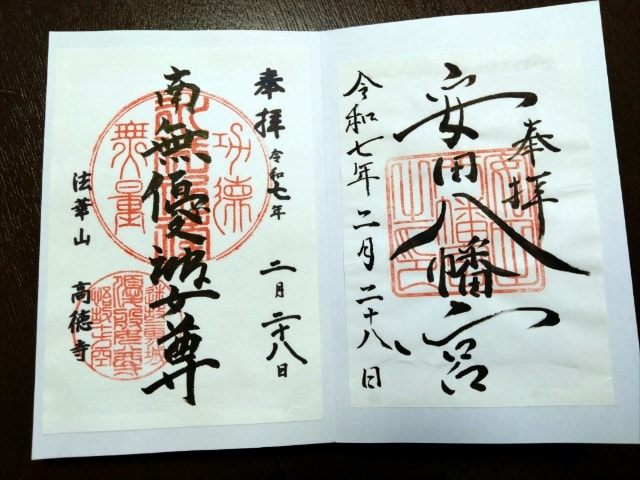 奉拝
安田八幡宮
令和七年二月二十八日
奉拝
令和七年
二月二十八日
南無優婆尊
功徳
無量
法華山
高徳寺